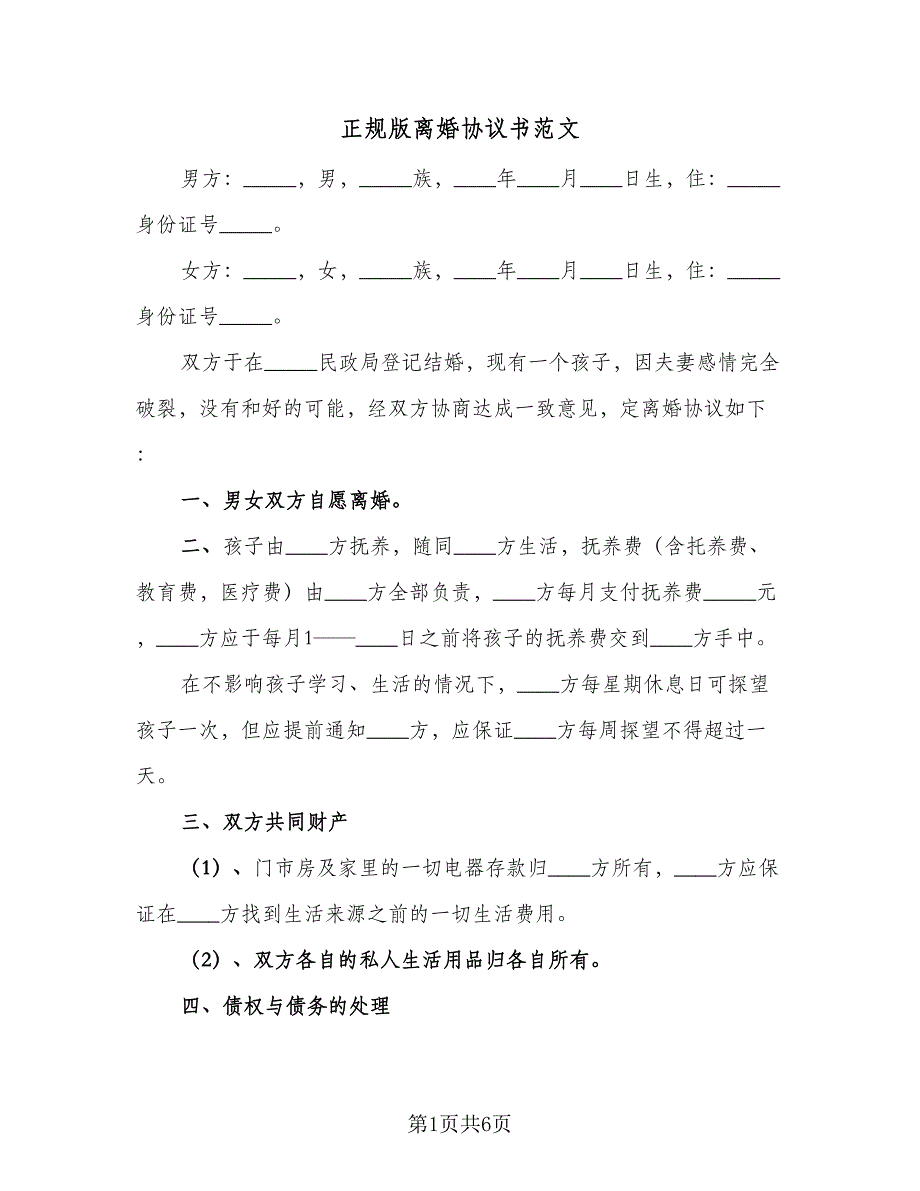 正规版离婚协议书范文
男方：_____，男，_____族，____年____月____日生，住：_____
身份证号_____。
女方：_____，女，_____族，____年____月____日生，住：_____
身份证号_____。
双方于在_____民政局登记结婚，现有一个孩子，因夫妻感情完全
破裂，没有和好的可能，经双方协商达成一致意见，定离婚协议如下
：
一、男女双方自愿离婚。
二、孩子由____方抚养，随同____方生活，抚养费（含托养费、
教育费，医疗费）由____方全部负责，____方每月支付抚养费_____元
，____方应于每月1——____日之前将孩子的抚养费交到____方手中。
在不影响孩子学习、生活的情况下，____方每星期休息日可探望
孩子一次，但应提前通知____方，应保证____方每周探望不得超过一
天。
三、双方共同财产
（1）、门市房及家里的一切电器存款归____方所有，____方应保
证在____方找到生活来源之前的一切生活费用。
（2）、双方各自的私人生活用品归各自所有。
四、债权与债务的处理
第1页共6页